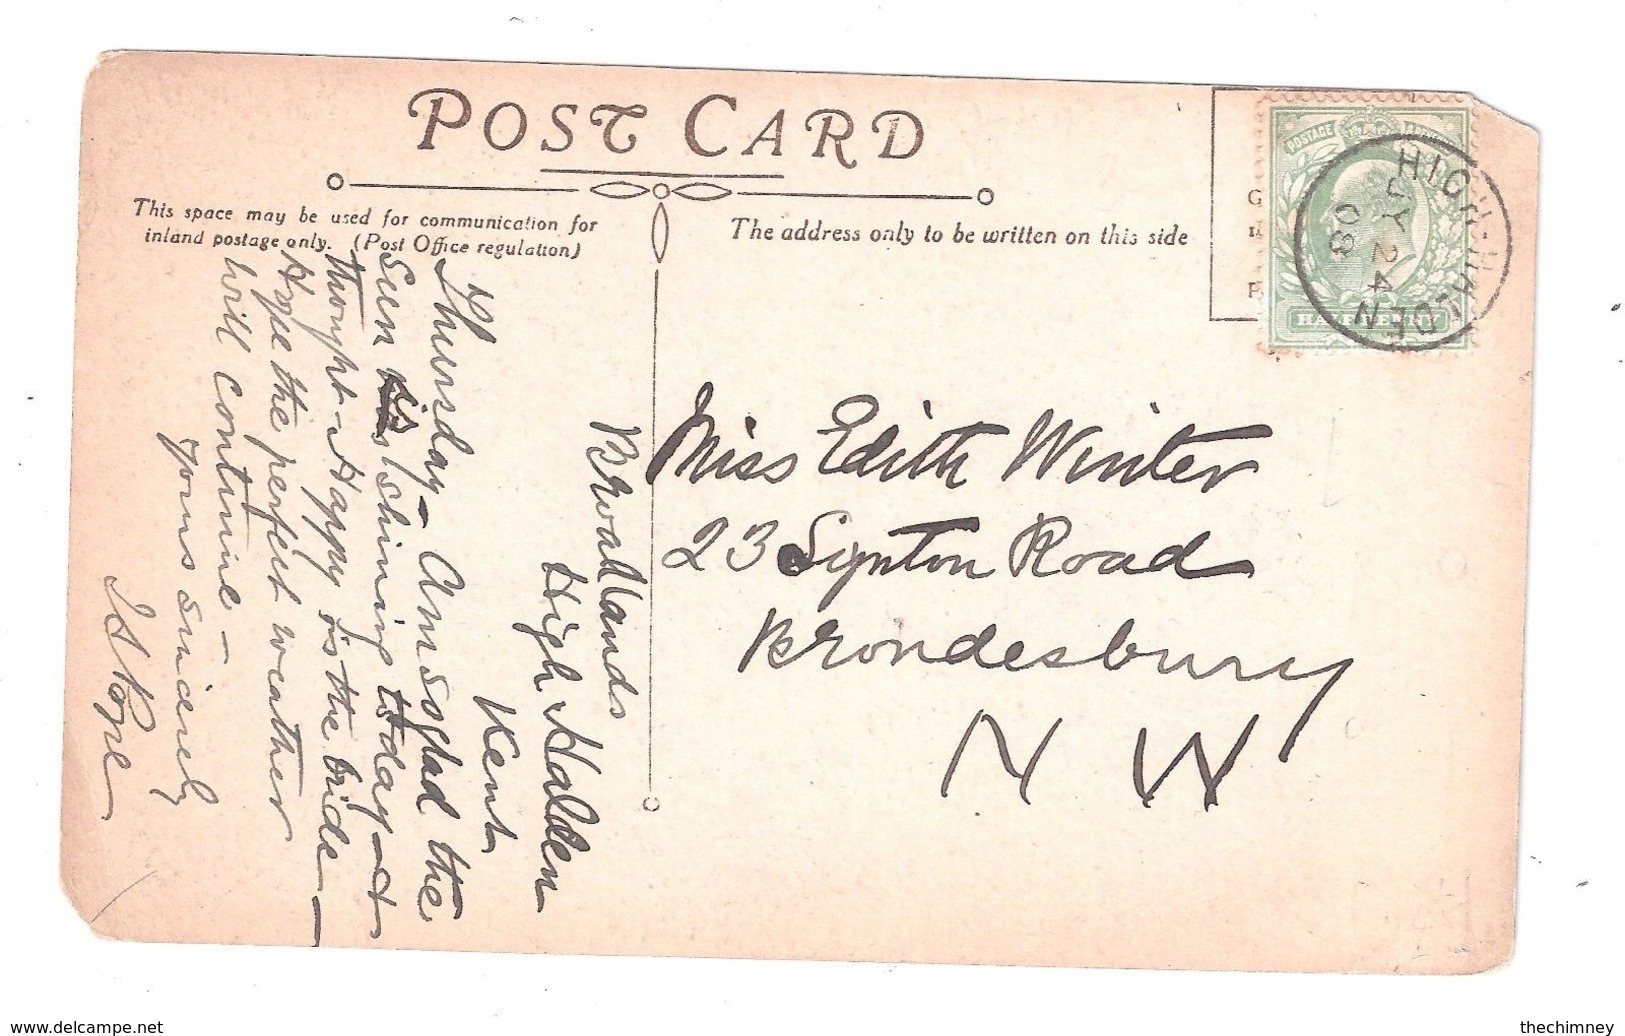 POST CARD
This space may be used for communication for
inland postage only. (Post Office regulation)
The address only to be written on this side
POSTAGE
HALFPENNY
HIGH-HALDEN
JY 24
08
Miss Edith Winter
23 Synton Road
Brondesbury
N W
High Halden
Kent
Thursday - Am so glad the
Sun is shining to day - &
thought - Happy is the bride -
Hope the perfect weather
will continue -
yours sincerely
thechimney
www.delcampe.net